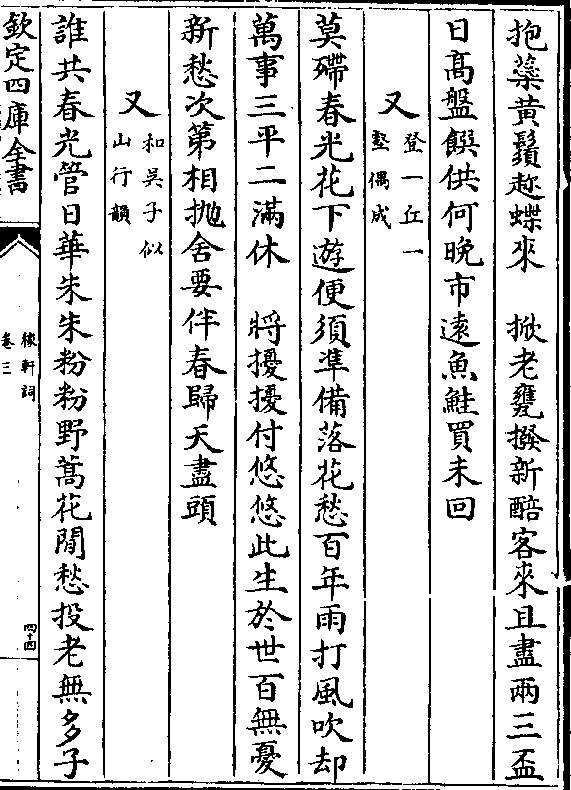 抱蘂黄鬚趂蝶來　掀老甕撥新醅客來且盡兩三盃
日髙盤饌供何晚市遠魚鮭買未回
又登一丘一
壑偶成
莫殢春光花下遊便須凖備落花愁百年雨打風吹却
萬事三平二滿休　將擾擾付悠悠此生於世百無憂
新愁次第相抛舍要伴春歸天盡頭
又和吳子似
山行韻
誰共春光管日華朱朱粉粉野蒿花閒愁投老無多子
欽定四庫全書
稼軒詞
卷三
四十四